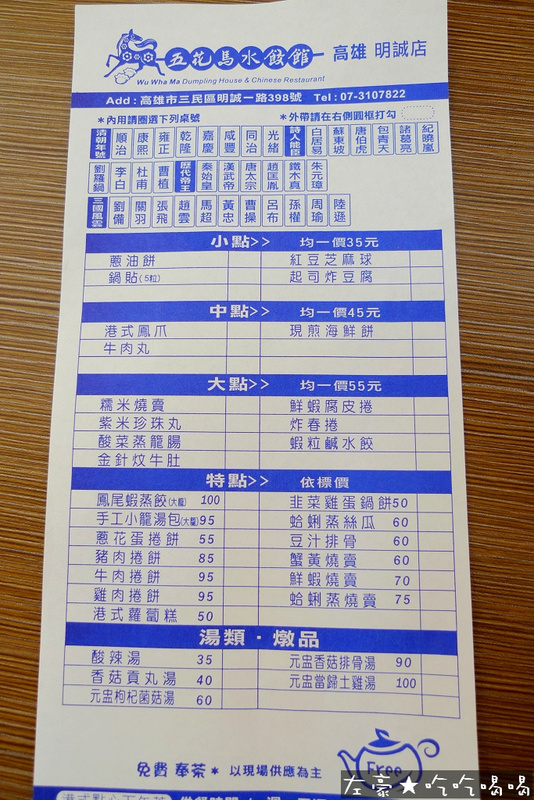 五花馬水餃館 高雄 明誠店
Wu Wha Ma Dumpling House & Chinese Restaurant
Add：高雄市三民區明誠一路398號 Tel：07-3107822
*內用請圈選下列桌號 *外帶請在右側圓框打勾
清朝年號 順治 康熙 雍正 乾隆 嘉慶 咸豐 同治 光緒 詩人能臣 白居易 蘇東坡 唐伯虎 包青天 諸葛亮 紀曉嵐
劉羅鍋 李白 杜甫 曹植 歷代帝王 秦始皇 漢武帝 唐太宗 趙匡胤 鐵木真 朱元璋
三國風雲 劉備 關羽 張飛 趙雲 馬超 黃忠 曹操 呂布 孫權 周瑜 陸遜
小點>> 均一價35元
蔥油餅 紅豆芝麻球
鍋貼(5粒) 起司炸豆腐
中點>> 均一價45元
港式鳳爪 現煎海鮮餅
牛肉丸
大點>> 均一價55元
糯米燒賣 鮮蝦腐皮捲
紫米珍珠丸 炸春捲
酸菜蒸龍腸 蝦粒鹹水餃
金針炆牛肚
特點>> 依標價
鳳尾蝦蒸餃(大籠) 100 韭菜雞蛋鍋餅50
手工小籠湯包(大籠)95 蛤蜊蒸絲瓜 60
蔥花蛋捲餅 55 豆汁排骨 60
豬肉捲餅 85 蟹黃燒賣 60
牛肉捲餅 95 鮮蝦燒賣 70
雞肉捲餅 95 蛤蜊蒸燒賣 75
港式蘿蔔糕 50
湯類・燉品
酸辣湯 35 元盅香菇排骨湯 90
香菇貢丸湯 40 元盅當歸土雞湯 100
元盅枸杞菌菇湯 60
免費 奉茶* 以現場供應為主
Free
左豪★吃吃喝喝